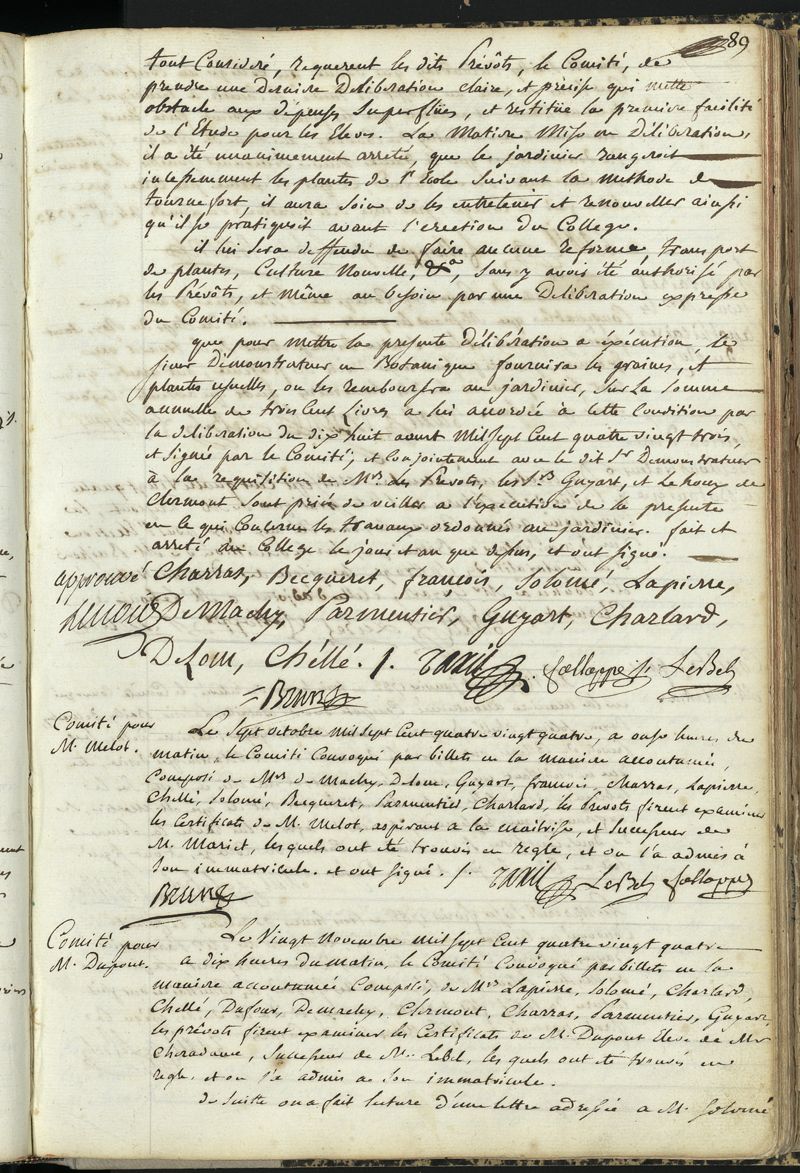 89
tout Consideré, requerent les dits Prévôts, le Comité, de
prendre une Derniere Deliberation claire, et précise qui mette
obstacle aux dépenses Superflües, et restitüe la premiere facilité
de l'Etude pour les Eleves. La Matiere Mise en Déliberation,
il a été unanimement arreté, que le jardinier rangeroit
incessemment les plantes de l'Ecole Suivant la methode de
tournefort, il aura Soin de les entretenir et renouveller ainsi
qu'il se pratiquoit avant l'erection du College.
il lui Sera deffendu de faire aucune reforme, transport
de plantes, Culture Nouvelle, &a, Sans y avoir été authorisé par
les Prévôts, et même au besoin par une Deliberation expresse
du Comité.
que pour mettre la presente déliberation a éxécution, le
sieur Démonstrateur en Botanique fournira les graines, et
plantes usuelles, ou les remboursera au jardinier, Sur La Somme
annuelle de trois Cent Livres a lui accordée à cette Condition par
la deliberation du dix huit aoust Mil Sept Cent quatre vingt trois,
et Signée par le Comité, et Conjointement avec le dit Sr Demonstrateur
à la requisition de Mrs les Prevots, les Srs Guyart, et LeHoux de
Clermont Sont priés de veiller a l'execution de la presente
en ce qui Concerne les travaux ordonnés au jardinier. fait et
arreté au College le jour et an que dessus, et ont signé.
approuvé Charras, Becqueret, françois, Solomé, Lapierre,
DeMachy, Parmentier, Guyart, Charlard,
Delun, Chéllé. /. Trevil Follopp Jr LeBel
= Brun
Comité pour
M. Melot.
Le Sept octobre mil Sept Cent quatre vingt quatre, a onze heures du
matin, le Comité Convoqué par billets en la maniere accoutumée,
Composé de Mrs de Machy, Delun, Guyart, francois, Charras, Lapierre,
Chellé, Solomé, Becqueret, Parmentier, Charlard, les Prevots firent examiner
les Certificats de M. Melot, aspirant a la maitrise, et Successeur de
M. Mariet, lesquels ont été trouvés en regle, et on l'a admis à
Son immatricule. et ont signé. /. LeBel
Brun
Comité pour
M. Dupont.
Le Vingt Novembre mil Sept Cent quatre vingt quatre
a dix heures du matin, le Comité Convoqué par billets en la
maniere accoutumée Composé, de Mrs Lapierre, Solomé, Charlard,
Chellé, Dufour, Demachy, Clermont, Charras, Parmentier, Guyart,
les prévots firent examiner les Certificats de M. Dupont Eleve de Mr
Cheradame, Successeur de M. Lebel, les quels ont été trouvés en
regle, et on l'a admis a Son immatricule.
de Suitte on a fait lecture d'une lettre adressée a M. Solomé